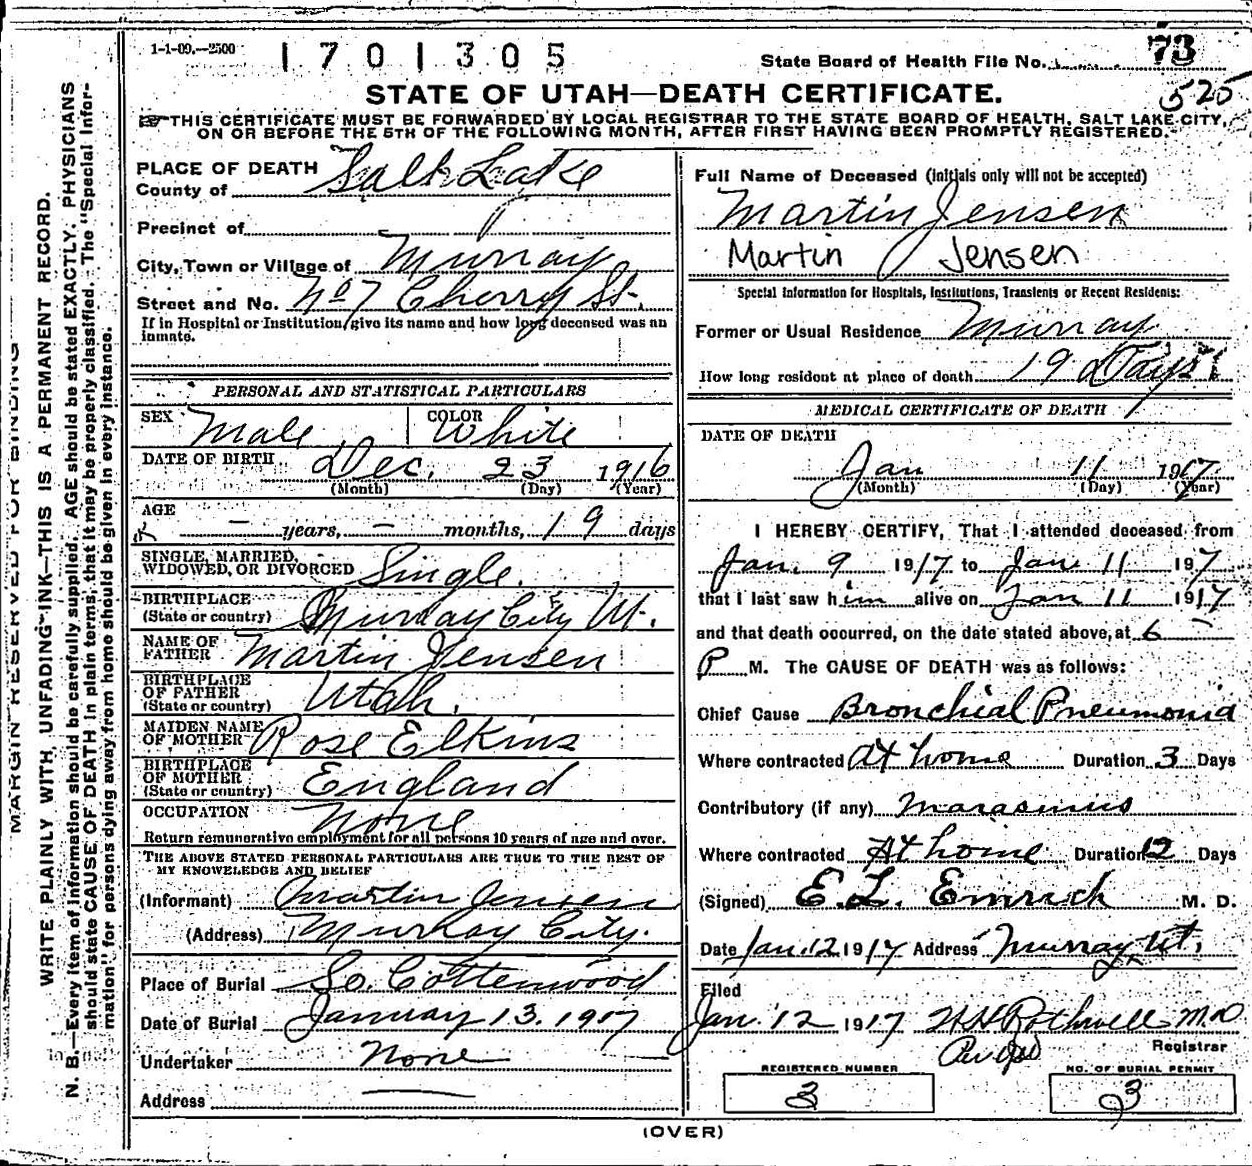 1-1-09.—2500
1701305
State Board of Health File No. 73
525
STATE OF UTAH—DEATH CERTIFICATE.
THIS CERTIFICATE MUST BE FORWARDED BY LOCAL REGISTRAR TO THE STATE BOARD OF HEALTH, SALT LAKE CITY,
ON OR BEFORE THE 5TH OF THE FOLLOWING MONTH, AFTER FIRST HAVING BEEN PROMPTLY REGISTERED.
MARGIN RESERVED FOR BINDING
WRITE PLAINLY WITH UNFADING INK—THIS IS A PERMANENT RECORD.
N. B.—Every item of information should be carefully supplied. AGE should be stated EXACTLY. PHYSICIANS
should state CAUSE OF DEATH in plain terms, that it may be properly classified. The "Special Infor-
mation" for persons dying away from home should be given in every instance.
PLACE OF DEATH
County of Salt Lake
Precinct of
City, Town or Village of Murray
Street and No. No 7 Cherry St.
If in Hospital or Institution, give its name and how long deceased was an
inmate.
PERSONAL AND STATISTICAL PARTICULARS
SEX Male COLOR White
DATE OF BIRTH Dec. 23 1916
(Month) (Day) (Year)
AGE
— years, — months, 19 days
SINGLE, MARRIED,
WIDOWED, OR DIVORCED Single.
BIRTHPLACE
(State or country) Murray City Ut.
NAME OF
FATHER Martin Jensen
BIRTHPLACE
OF FATHER
(State or country) Utah.
MAIDEN NAME
OF MOTHER Rose Elkins
BIRTHPLACE
OF MOTHER
(State or country) England
OCCUPATION None
Return remunerative employment for all persons 10 years of age and over.
THE ABOVE STATED PERSONAL PARTICULARS ARE TRUE TO THE BEST OF
MY KNOWLEDGE AND BELIEF
(Informant) Martin Jensen
(Address) Murray City.
Place of Burial So. Cottenwood
Date of Burial January 13. 1917
Undertaker None
Address —
Full Name of Deceased (initials only will not be accepted)
Martin Jensen
Martin Jensen
Special Information for Hospitals, Institutions, Transients or Recent Residents:
Former or Usual Residence Murray
How long resident at place of death 19 Days
MEDICAL CERTIFICATE OF DEATH
DATE OF DEATH
Jan 11 1917
(Month) (Day) (Year)
I HEREBY CERTIFY, That I attended deceased from
Jan. 9 1917 to Jan. 11 197
that I last saw him alive on Jan 11 1917
and that death occurred, on the date stated above, at 6 —
P M. The CAUSE OF DEATH was as follows:
Chief Cause Bronchial Pneumonia
Where contracted At home Duration 3 Days
Contributory (if any) Marasmus
Where contracted At home Duration 12 Days
(Signed) E. L. Emrich M. D.
Date Jan. 12 1917 Address Murray, Ut.
Filed
Jan. 12 1917 H N Rothwell M.D
Registrar
REGISTERED NUMBER
3
NO. OF BURIAL PERMIT
3
(OVER)